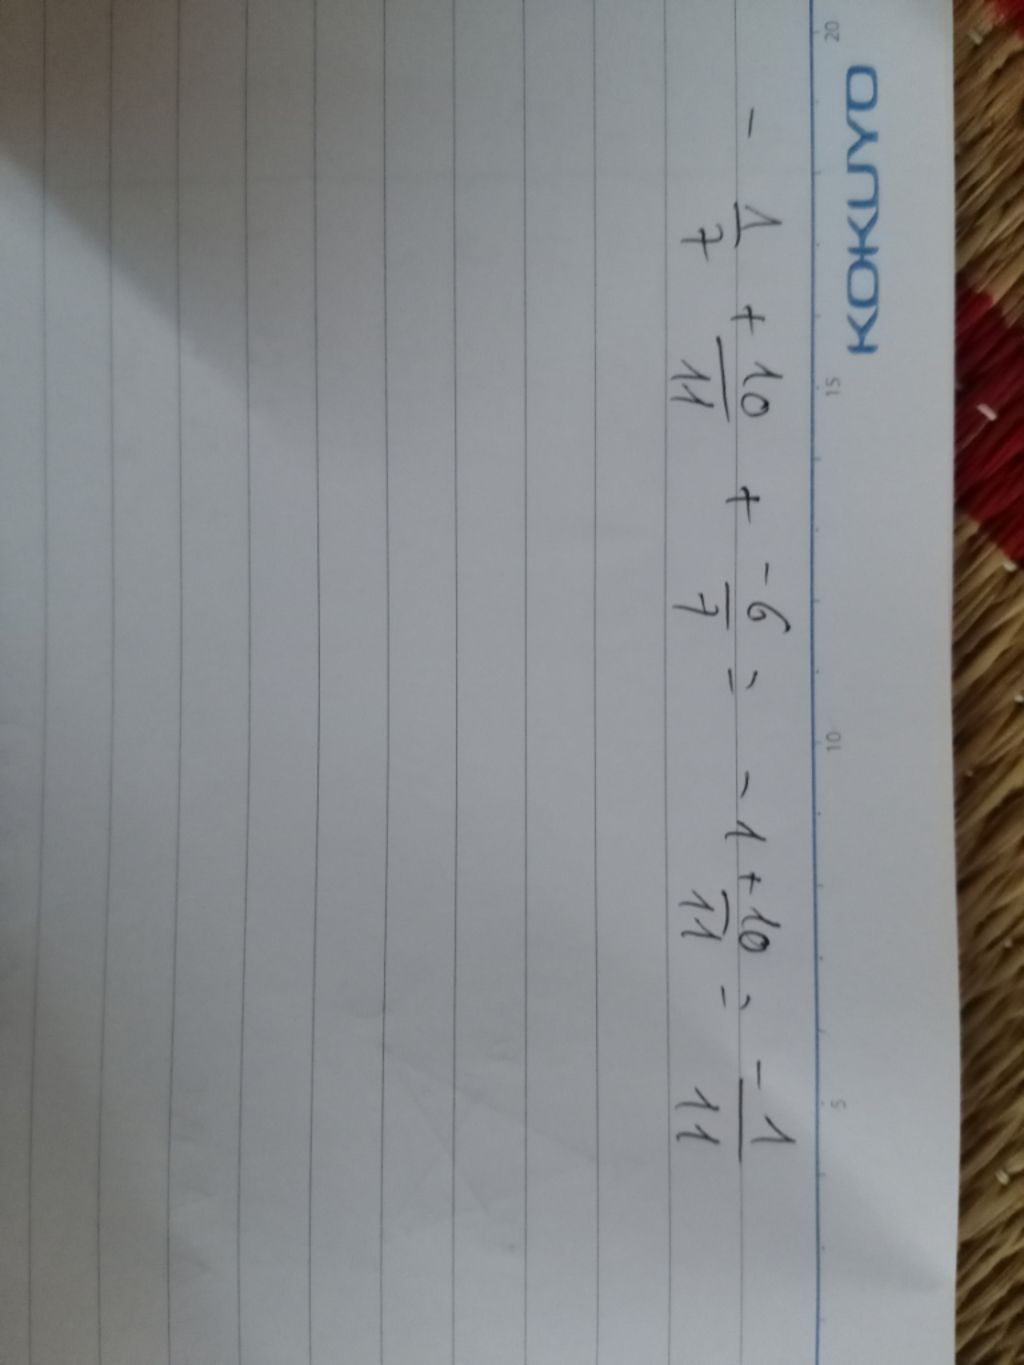 KOKUYO
20 15 10 5
- 1/7 + 10/11 + -6/7 = -1 + 10/11 = -1/11